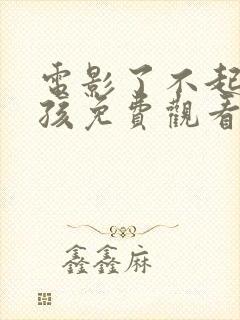 電影了不起
孩免費觀看
鑫鑫麻